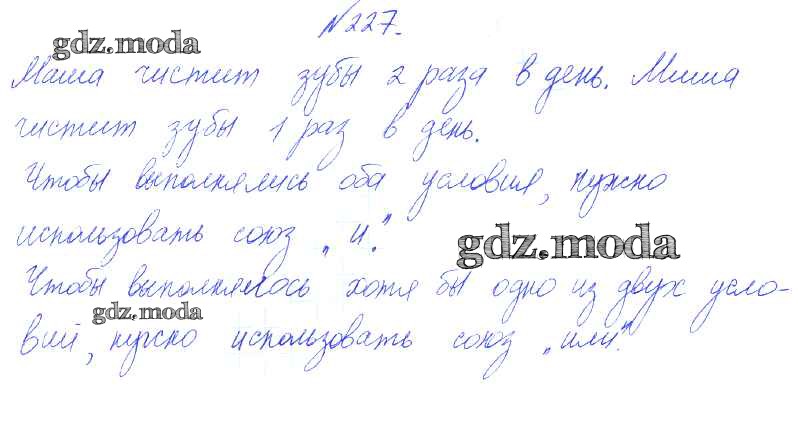 №227.
gdz.moda
Маша чистит зубы 2 раза в день. Миша
чистит зубы 1 раз в день.
Чтобы выполнялись оба условия, нужно
использовать союз „и".
gdz.moda
Чтобы выполнялось хотя бы одно из двух усло-
gdz.moda
вий, нужно использовать союз „или".